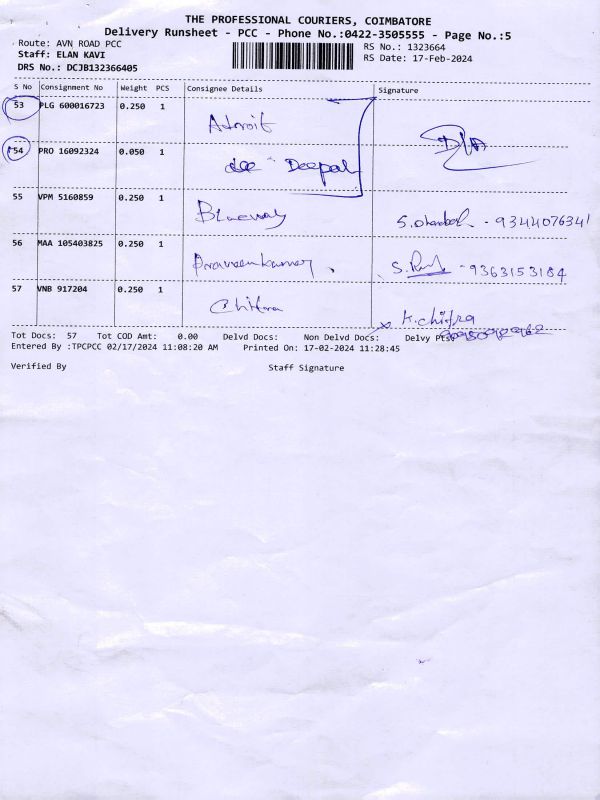 THE PROFESSIONAL COURIERS, COIMBATORE
Delivery Runsheet - PCC - Phone No.:0422-3505555 - Page No.:5
Route: AVN ROAD PCC
RS No.: 1323664
Staff: ELAN KAVI
RS Date: 17-Feb-2024
DRS No.: DCJB132366405
S No Consignment No Weight PCS Consignee Details Signature
53 PLG 600016723 0.250 1 Adroit
54 PRO 16092324 0.050 1 Deepak
55 VPM 5160859 0.250 1 Blueway - 9344076341
56 MAA 105403825 0.250 1 Praveenkumar S. - 9363153184
57 VNB 917204 0.250 1 Chitra K. chitra
Tot Docs: 57 Tot COD Amt: 0.00 Delvd Docs: Non Delvd Docs: Delvy Pts:
Entered By :TPCPCC 02/17/2024 11:08:20 AM Printed On: 17-02-2024 11:28:45
Verified By Staff Signature